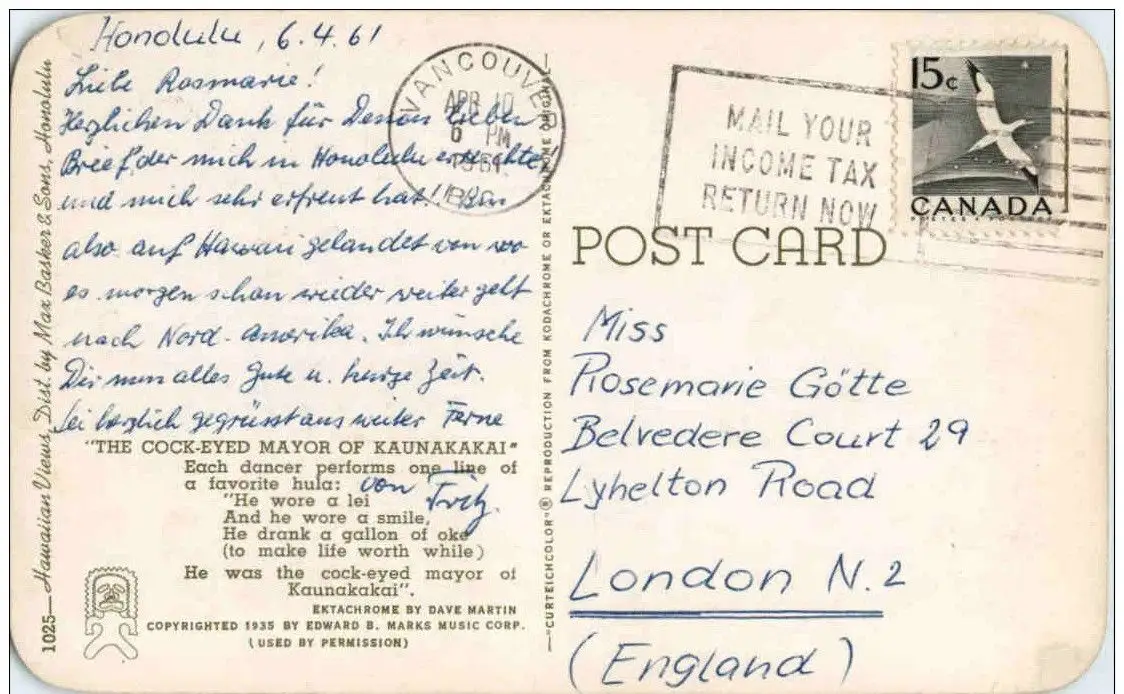 Honolulu, 6.4.61
Liebe Rosmarie!
Herzlichen Dank für Deinen lieben
Brief, der mich in Honolulu erreichte
und mich sehr erfreut hat!! Bin
also auf Hawaii gelandet von wo
es morgen schon wieder weiter geht
nach Nord-Amerika. Ich wünsche
Dir nun alles Gute u. Zeit.
Sei herzlich gegrüsst aus weiter Ferne
von Fritz.
"THE COCK-EYED MAYOR OF KAUNAKAKAI"
Each dancer performs one line of
a favorite hula:
"He wore a lei
And he wore a smile,
He drank a gallon of oke
(to make life worth while)
He was the cock-eyed mayor of
Kaunakakai".
EKTACHROME BY DAVE MARTIN
COPYRIGHTED 1935 BY EDWARD B. MARKS MUSIC CORP.
(USED BY PERMISSION)
1025—Hawaiian Views, Dist. by Max Basker & Sons, Honolulu
—"CURTEICHCOLOR"® REPRODUCTION FROM KODACHROME OR EKTACHROME ORIGINAL—
VANCOUVER
APR 10
6 PM
1961
MAIL YOUR
INCOME TAX
RETURN NOW
15¢
CANADA
POSTES POSTAGE
POST CARD
Miss
Rosemarie Götte
Belvedere Court 29
Lyhelton Road
London N.2
(England)